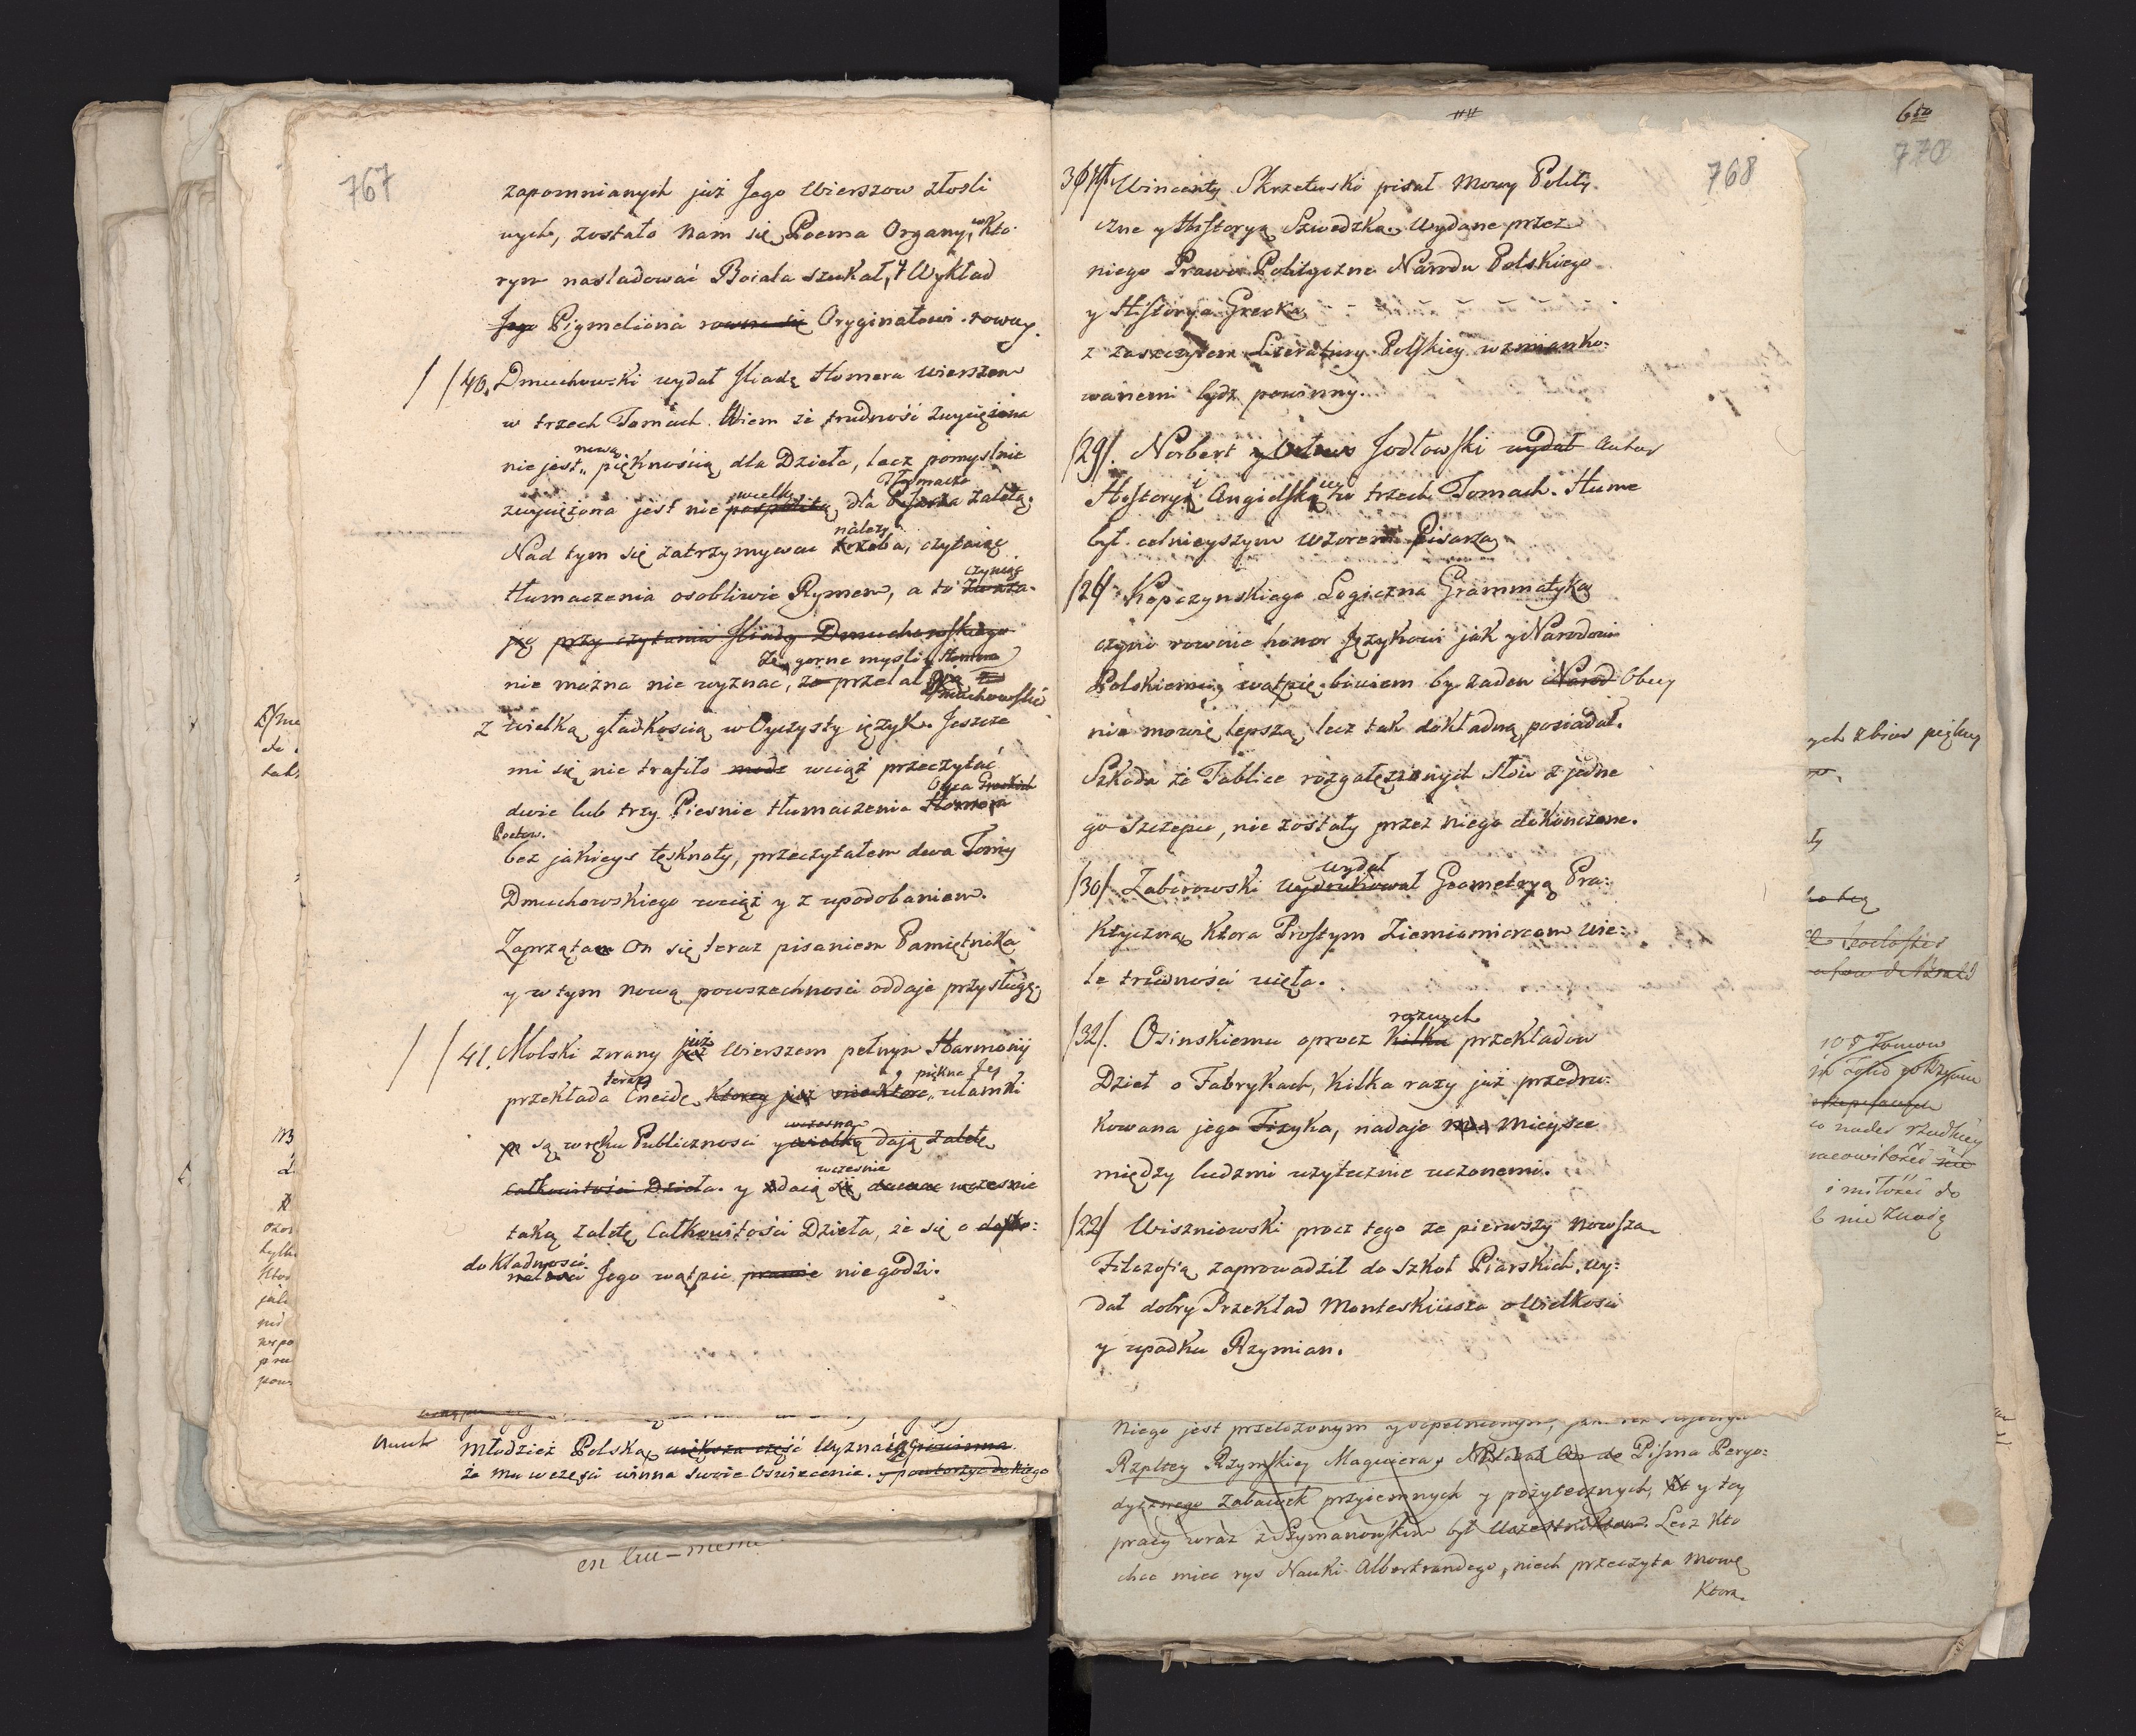 767
zapomnianych już Jego Wierszow złośli
wych, zostało nam się Poema Organy, w Kto
rym nasladować Boiala szukał, y Wykład
Jego Pigmeliona rowna się Oryginałowi rowny.
40. Dmuchowski wydał Iliadę Homera wierszem
w trzech Tomach. Wiem że trudność zwyciężona
nową
nie jest pięknością dla Dzieła, lecz pomyslnie
wielką Tłomacza
zwyciężona jest nie pospolitą dla Pisarza zaletą.
należy
Nad tym się zatrzymywac trzeba, czytaiąc
czyniąc
tłumaczenia osobliwie Rymem, a to
ię przy czytaniu Iliady Dmuchowskiego
że gorne mysli Homera
nie można nie wyznać, że przelał
Dmuchowski
z wielką gładkoscią w Oyczysty ięzyk. Jeszcze
mi się nie trafiło wciąż przeczytać
Oyca Greckich
dwie lub trzy Piesnie tłumaczenia Homera
Poetow.
bez jakieys tęsknoty, przeczytałem dwa Tomy
Dmuchowskiego wciąż y z upodobaniem.
Zaprząta On się teraz pisaniem Pamiętnika
y w tym nową powszechnosci oddaje przysługę.
już
41. Molski znany już Wierszem pełnym Harmonij
teraz a piękne Jey
przekłada Eneidę, Ktorey już niektore ułamki
wczesną
są w ręku Publicznosci y wielką dają zaletę
wczesnie
całkowitości Dzieła. y daią wczesnie
taką zaletę Całkowitości Dzieła, że się o dosko:
dokładności
nałosci Jego wątpic prawie nie godzi.
Młodzież Polska, większa część Wyznać powinna
że mu w częsci winna swoie Oswiecenie. y powtorzyc do Kiego
en lui-meme
768
Wincenty Skrzetuski pisał Mowy Polity
czne y Historyą Szwedzką. Wydane przez
niego Prawo Polityczne Narodu Polskiego
y Historya Grecka
z zaszczytem Literatury Polskiey wzmianko:
wanemi bydz powinny.
/29/. Norbert Jodłowski wydał Autor
Historyi Angielskiey w trzech Tomach. Hume
był celnieyszym wzorem Pisarza
/26/ Kopczynskiego Logiczna Grammatyka
czyni rownie honor Językowi jak y Narodowi
Polskiemu, wątpię bowiem by żaden Narod Obcy
nie mowię lepszą, lecz tak dokładną posiadał.
Szkoda że Tablice rozgałęzionych Słow z jedne
go Szczepu, nie zostały przez niego dokończone.
wydał
/30/. Zaborowski wydrukował Geometryą Pra:
ktyczną, Ktora Prostym Ziemiomiercom wie:
le trudności ujęła.
roznych
/32/. Osinskiemu oprocz kilku przekładow
Dzieł o Fabrykach, Kilka razy już przedru:
kowana jego Fizyka, nadaje Mieysce
między ludzmi użytecznie uczonemi.
/22/ Wiszniowski procz tego że pierwszy nowszą
Filozofią zaprowadził do Szkoł Piarskich, wy:
dał dobry Przekład Monteskiusza o Wielkosci
y upadku Rzymian.
Niego jest przełożonym y dopełnionym,
Rzpltey Rzymskiey Maquiera, Należał On do Pisma Peryo:
dycznego Zabawek przyiemnych y pożytecznych, y tey
pracy wraz z Szymanowskim był Uczestnikiem. Lecz Kto
chce miec rys Nauki Albertrandego, niech przeczyta Mowę
Ktora
650
770
ych zbior piękny
10 8 Tomow
i miłości do